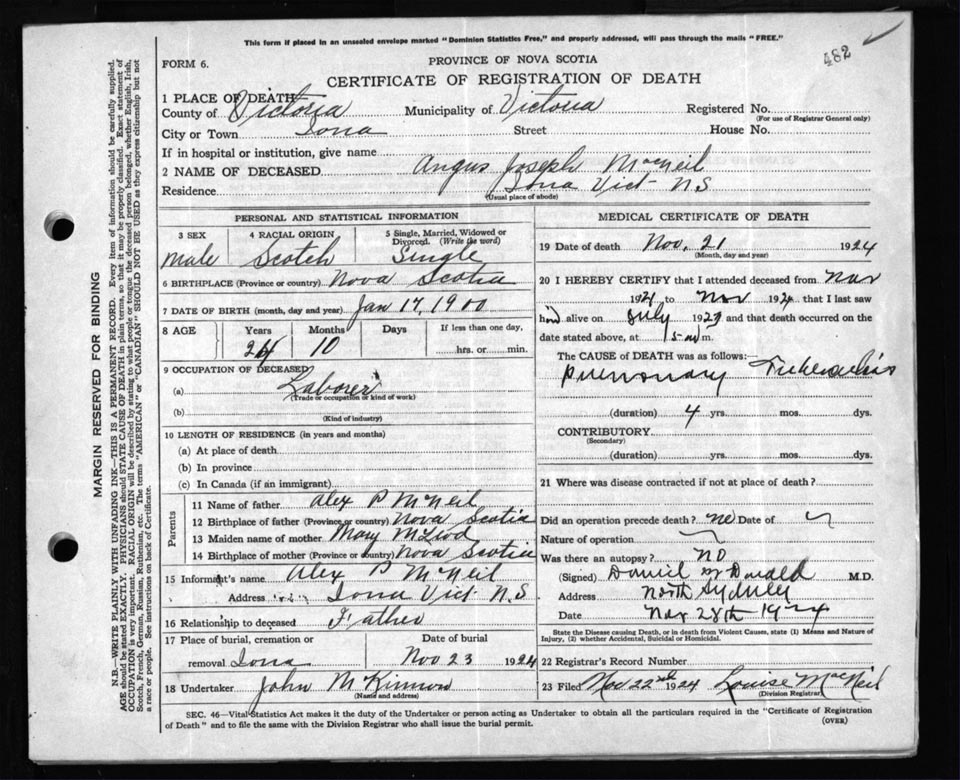 This form if placed in an unsealed envelope marked "Dominion Statistics Free," and properly addressed, will pass through the mails "FREE."
482
FORM 6.
PROVINCE OF NOVA SCOTIA
CERTIFICATE OF REGISTRATION OF DEATH
1 PLACE OF DEATH
County of Victoria Municipality of Victoria Registered No.
(For use of Registrar General only)
City or Town Iona Street House No.
If in hospital or institution, give name
2 NAME OF DECEASED Angus Joseph MacNeil
Residence Iona Vict N S
(Usual place of abode)
PERSONAL AND STATISTICAL INFORMATION
3 SEX 4 RACIAL ORIGIN 5 Single, Married, Widowed or Divorced. (Write the word)
Male Scotch Single
6 BIRTHPLACE (Province or country) Nova Scotia
7 DATE OF BIRTH (month, day and year) Jan 17, 1900
8 AGE Years Months Days If less than one day,
24 10 hrs. or min.
9 OCCUPATION OF DECEASED
(a) Laborer
(Trade or occupation or kind of work)
(b)
(Kind of industry)
10 LENGTH OF RESIDENCE (in years and months)
(a) At place of death
(b) In province
(c) In Canada (if an immigrant)
Parents
11 Name of father Alex P McNeil
12 Birthplace of father (Province or country) Nova Scotia
13 Maiden name of mother Mary McLeod
14 Birthplace of mother (Province or country) Nova Scotia
15 Informant's name Alex P McNeil
Address Iona Vict N.S
16 Relationship to deceased Father
17 Place of burial, cremation or Date of burial
removal Iona Nov 23 1924
18 Undertaker John McKinnon
(Name and address)
MEDICAL CERTIFICATE OF DEATH
19 Date of death Nov. 21 1924
(Month, day and year)
20 I HEREBY CERTIFY that I attended deceased from Nov
1921 to Nov 1924 that I last saw
him alive on July 1923 and that death occurred on
date stated above, at m.
The CAUSE OF DEATH was as follows:
Pulmonary Tuberculosis
(duration) 4 yrs. mos. dys.
CONTRIBUTORY
(Secondary)
(duration) yrs. mos. dys.
21 Where was disease contracted if not at place of death?
Did an operation precede death? no Date of
Nature of operation
Was there an autopsy? NO
(Signed) Daniel McDonald M.D.
Address North Sydney
Date Nov 28th 1924
State the Disease causing Death, or in death from Violent Causes, state (1) Means and Nature of
Injury, (2) whether Accidental, Suicidal or Homicidal.
22 Registrar's Record Number
23 Filed Nov 22nd 1924 Louise MacNeil
(Division Registrar)
SEC. 46—Vital Statistics Act makes it the duty of the Undertaker or person acting as Undertaker to obtain all the particulars required in the "Certificate of Registration
of Death" and to file the same with the Division Registrar who shall issue the burial permit. (OVER)
MARGIN RESERVED FOR BINDING
N.B.—WRITE PLAINLY WITH UNFADING INK—THIS IS A PERMANENT RECORD. Every item of information should be carefully supplied.
AGE should be stated EXACTLY. PHYSICIANS should STATE CAUSE OF DEATH in plain terms, so that it may be properly classified. Exact statement of
OCCUPATION is very important. RACIAL ORIGIN will be described by stating to what people or tongue the deceased person belonged, whether English, Irish,
Scotch, French, German, Russian, Ruthenian, etc. The terms "AMERICAN" or "CANADIAN" SHOULD NOT BE USED as they express citizenship but not
a race or people. See instructions on back of Certificate.